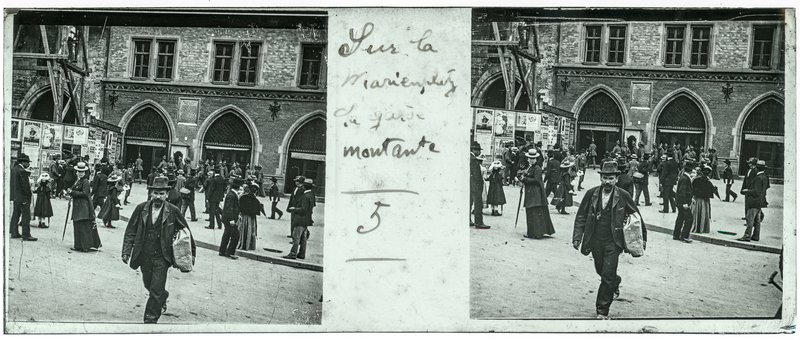 Sur la
Marienplatz
la garde
montante
5